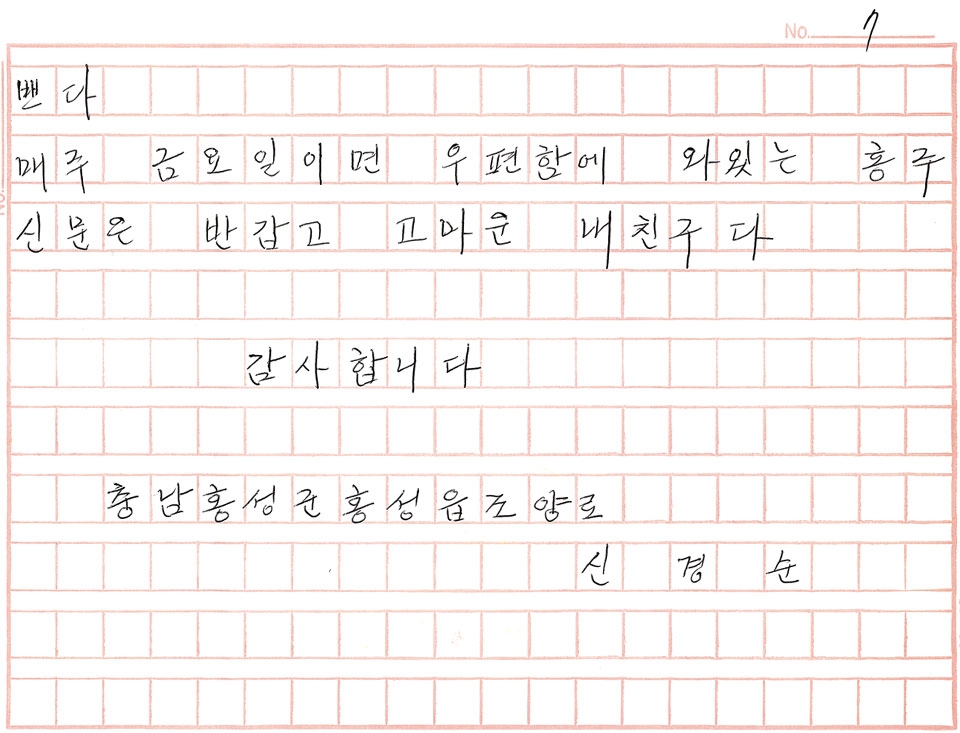 No. 7
밴다
매주 금요일이면 우편함에 와있는 홍주
신문은 반갑고 고마운 내친구다
감사합니다
충남홍성군홍성읍조양로
신 경 순